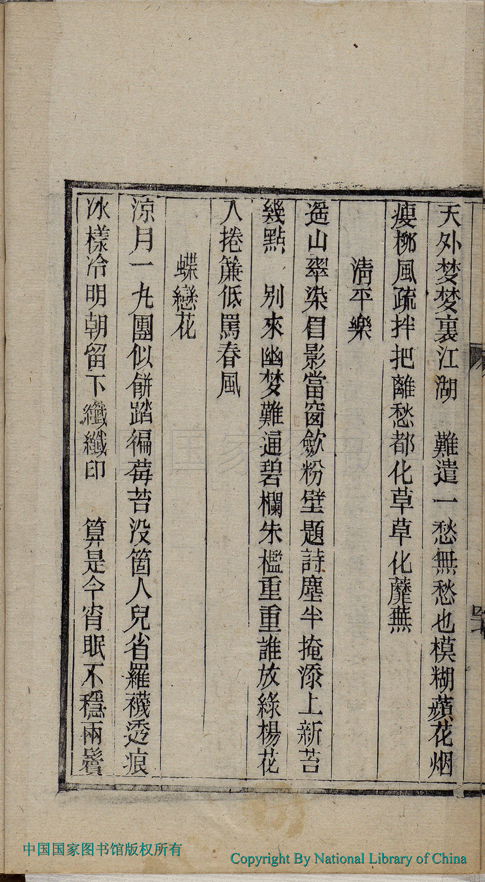 天外梦梦裏江湖　難遣一愁無愁也模糊蘋花烟
瘦柳風疏拌把離愁都化草草化蘼蕪
清平樂
遥山翠染眉影當窗歛粉壁題詩塵半掩添上新苔
幾點　別來幽梦難通碧欄朱檻重重誰放綠楊花
入捲簾低罵春風
蝶戀花
涼月一丸團似餅踏徧莓苔没箇人兒省羅襪透痕
冰樣冷明朝留下纖纖印　算是今宵眠不穩兩鬢
中国国家图书馆版权所有
Copyright By National Library of China